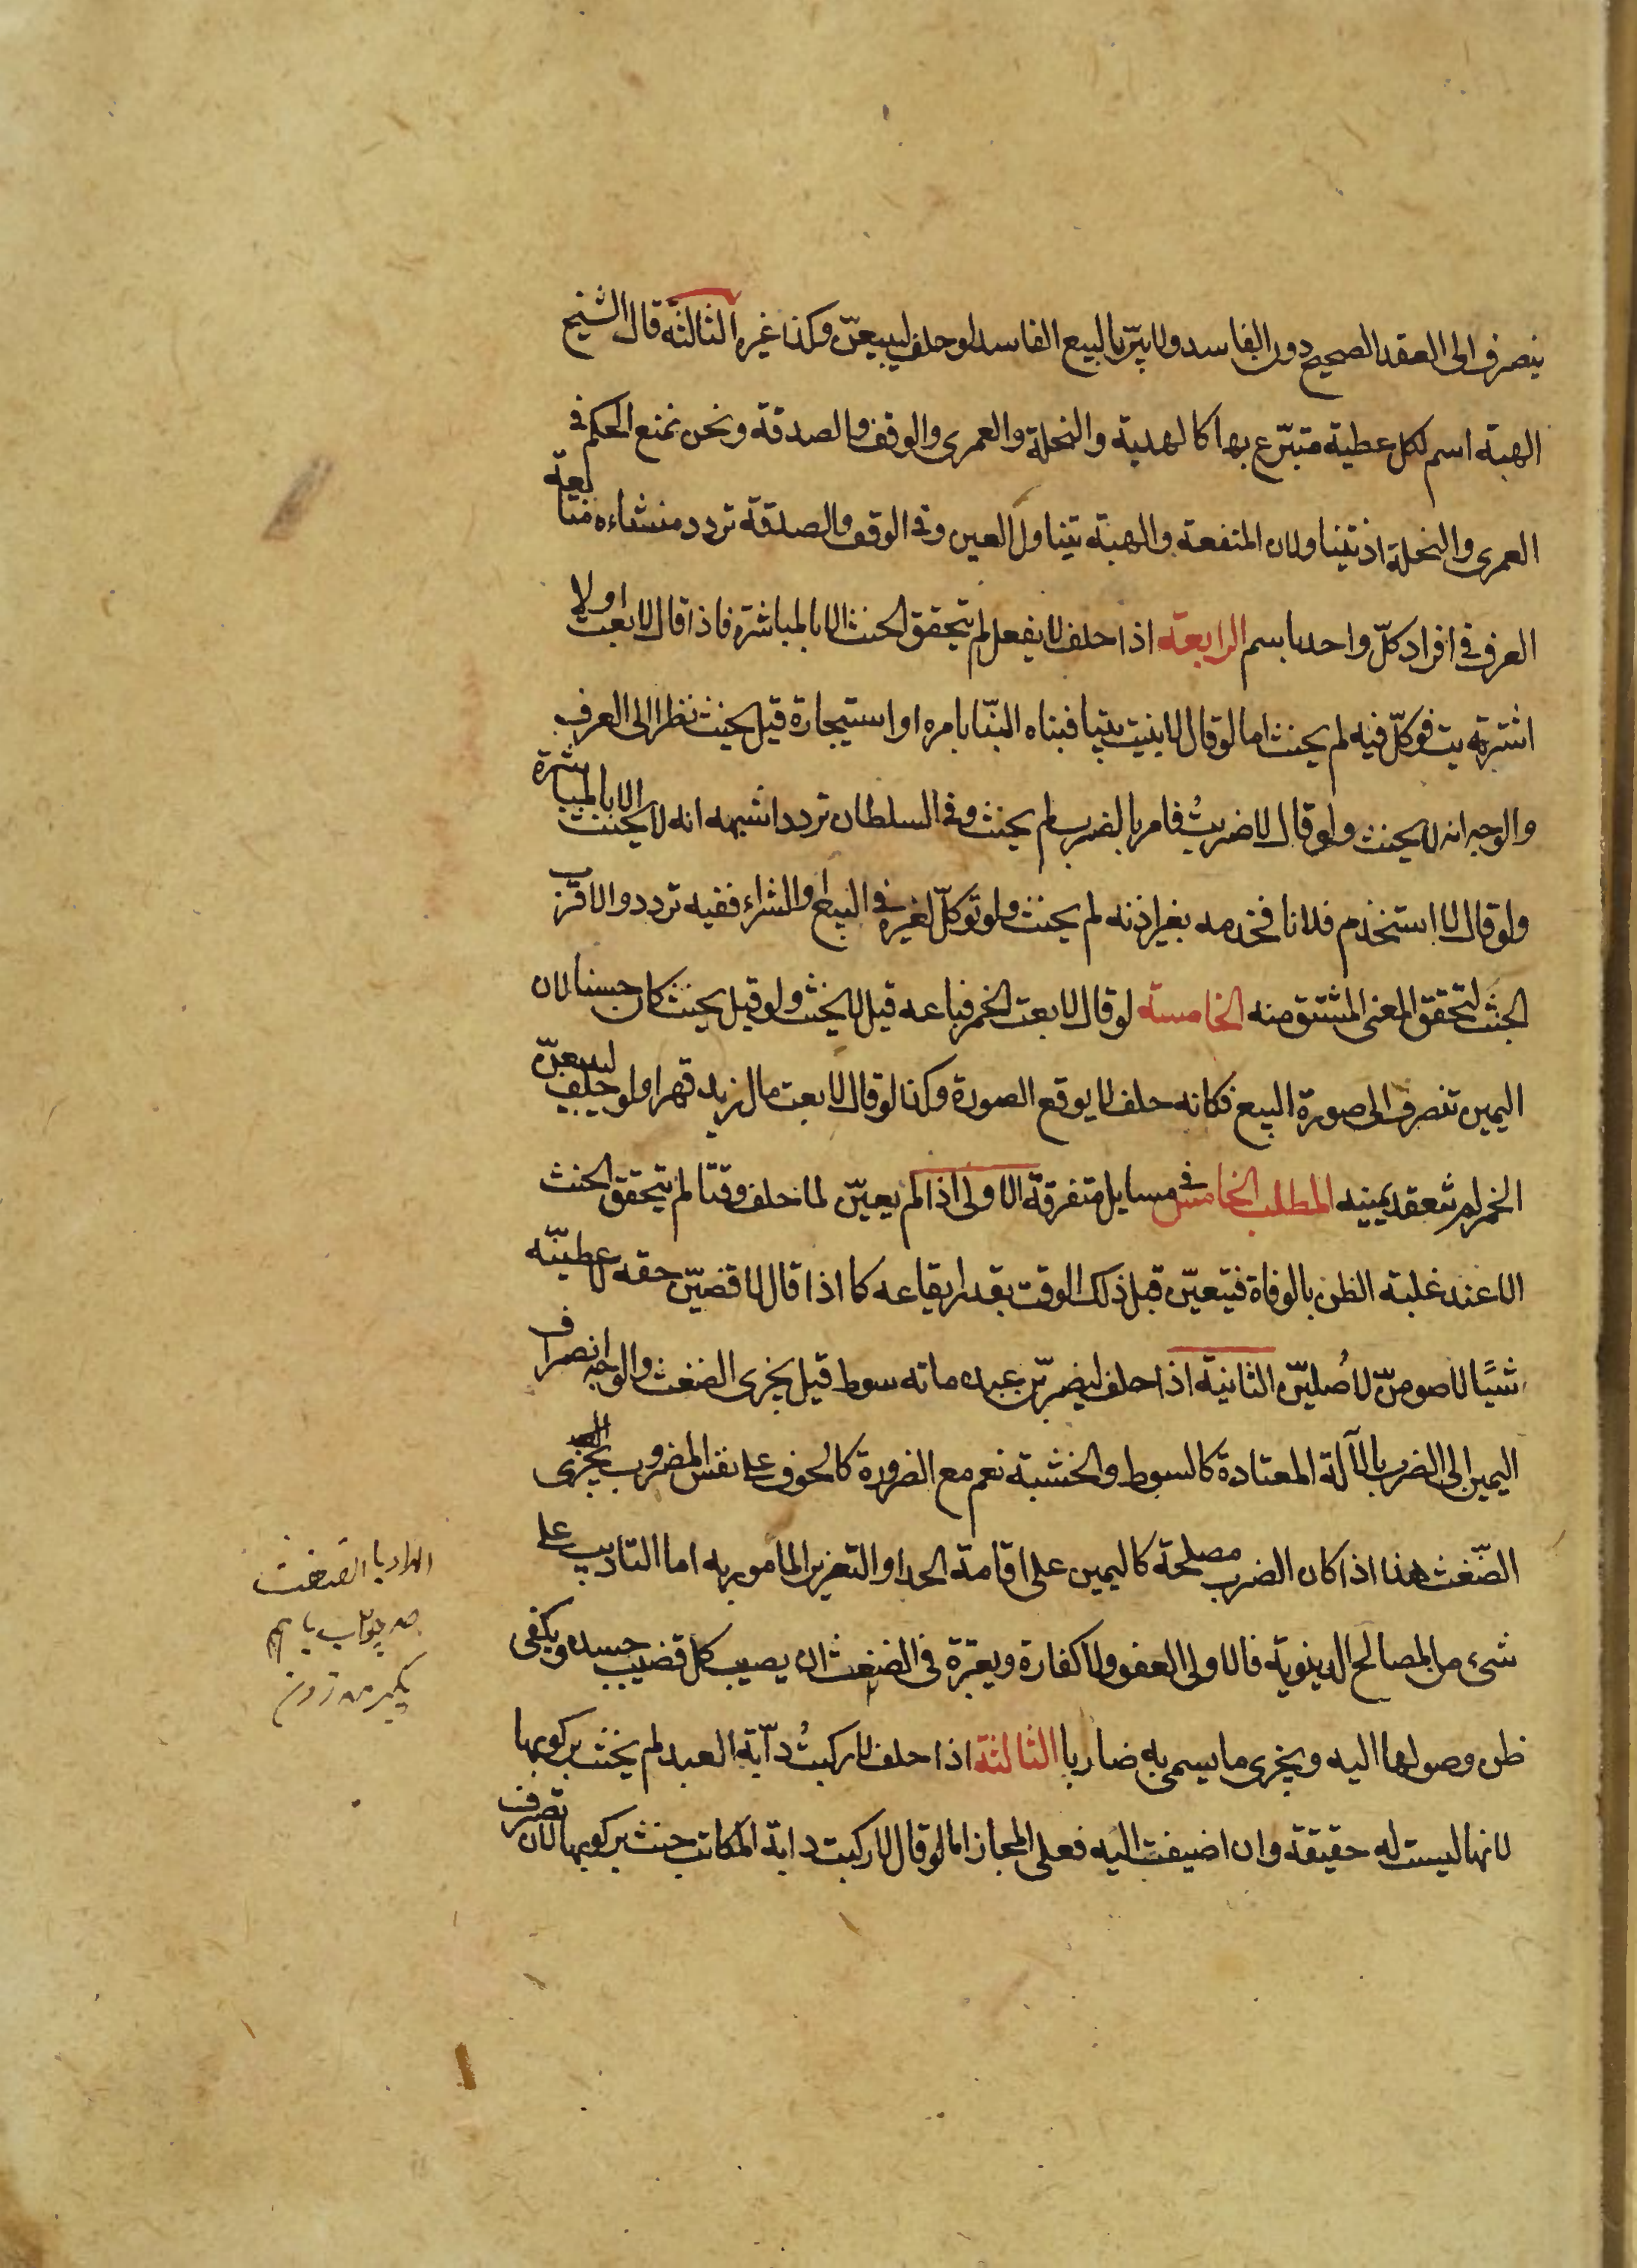 ينصرف الى العقد الصحيح دون الفاسد ولا يبرّ بالبيع الفاسد لو حلف ليبيعنّ وكذا غيره الثالثة قال الشيخ
الهبة اسم لكل عطية متبرّع بها كالهدية والنحلة والعمرى والوقف والصدقة ونحن نمنع الحكم في
العمرى والنحلة اذ يتناولان المنفعة والهبة يتناول العين وفى الوقف والصدقة تردد منشاءه متابعة
العرف في افراد كلّ واحد باسم الرابعة اذا حلف لا يفعل لم يتحقق الحنث الا بالمباشرة فاذا قال لا بعت او لا
اشتريت فوكّل فيه لم يحنث اما لو قال لا بنيت بيتا فبناه البنّا بامره او استيجاره قيل يحنث نظرا الى العرف
والوجه انه لا يحنث ولو قال لا ضربتُ فامر بالضرب لم يحنث وفى السلطان تردد اشبهه انه لا يحنث الا بالمباشرة
ولو قال لا استخدم فلانا فخدمه بغير اذنه لم يحنث ولو توكّل لغيره في البيع او الشراء ففيه تردد والاقرب
الحنث لتحقق المعنى المشتق منه الخامسة لو قال لا بعت الخمر فباعه قيل لا يحنث ولو قيل يحنث كان حسنا لان
اليمين تنصرف الى صورة البيع فكانه حلف لا يوقع الصورة وكذا لو قال لا بعت مال زيد قهرا ولو حلف ليبيعنّ
الخمر لم تنعقد يمينه المطلب الخامس في مسايل متفرقة الاولى اذا لم يعيّن لما حلف وقتا لم يتحقق الحنث
الا عند غلبة الظن بالوفاة فيتعيّن قبل ذلك الوقت بقدر ايقاعه كما اذا قال لاقضيّن حقه لاعطينّه
شيًا لاصومنّ لاُصليّن الثانية اذا حلف ليضربّن عبده ماته سوط قيل يجزى الضغث والوجه انصراف
اليمين الى الضرب بالآلة المعتادة كالسوط والخشبة نعم مع الضرورة كالخوف على نفس المضروب يجزى
الضّغث هذا اذا كان الضرب مصلحة كاليمين على اقامة الحد او التعزير المامور به اما التاديب على
شىء من المصالح الدينوية فالاولى العفو ولا كفارة ويعتبرة في الضغث ان يصيب كل قضيب جسده ويكفى
ظن وصولها اليه ويجزى ما يسمى به ضاربا الثالثة اذا حلف لا ركبتُ دآبة العبد لم يحنث بركوبها
لانها ليست له حقيقة وان اضيفت اليه فعلى المجاز اما لو قال لا ركبت دابة المكاتب حنث بركوبها لان تصرف
المراد بالضغث